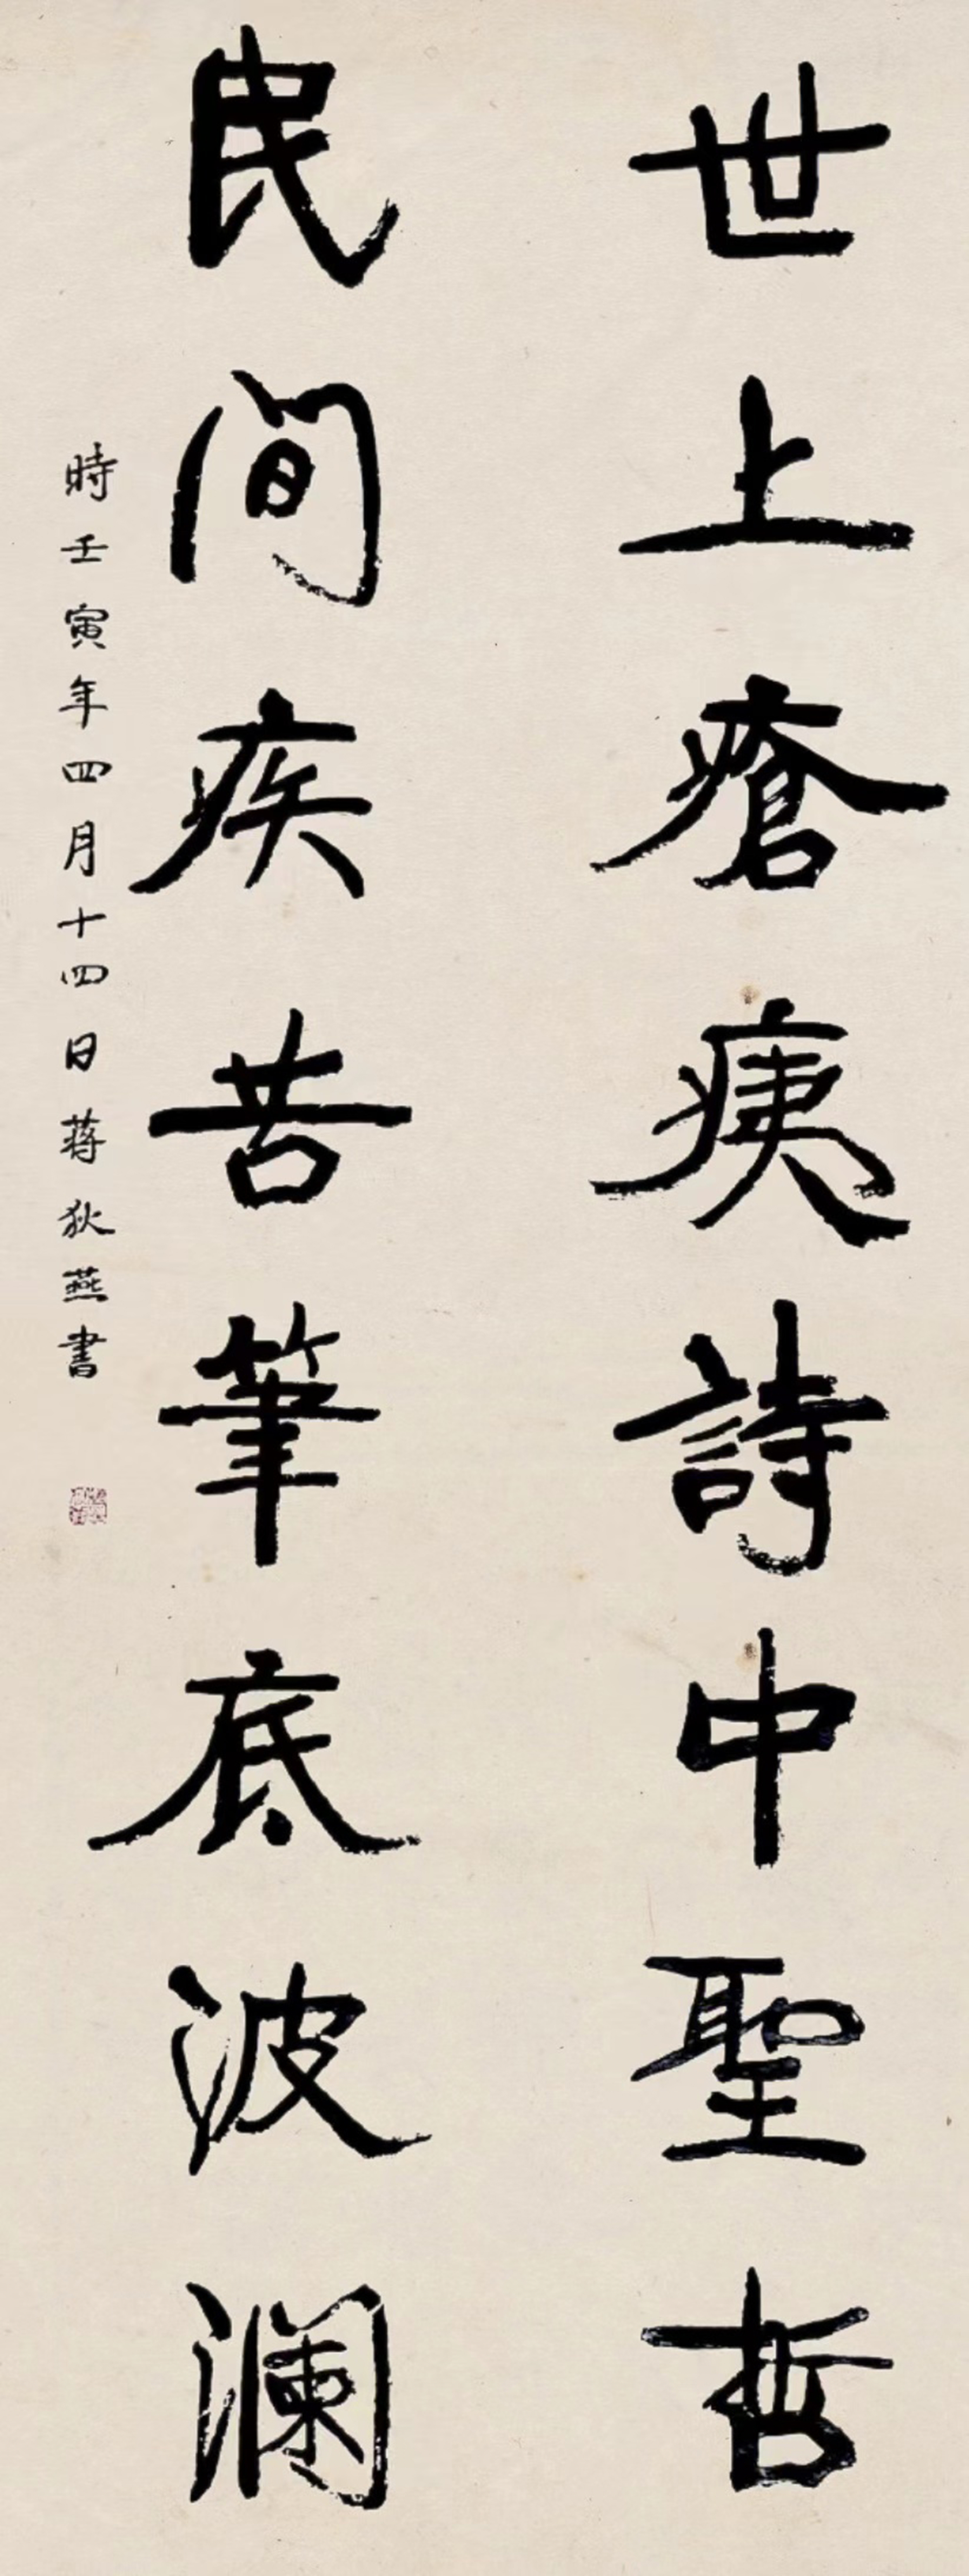 世上瘡痍詩中聖哲
民间疾苦筆底波澜
時壬寅年四月十四日蒋狄燕書